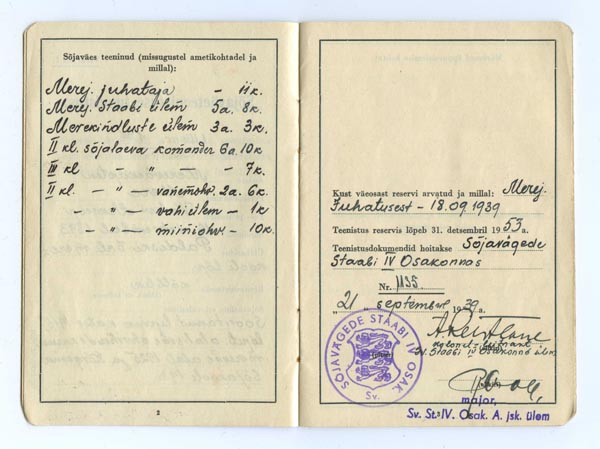 Sõjaväes teeninud (missugustel ametikohtadel ja
millal):
Merej. juhataja — 11 k.
Merej. Staabi ülem 5 a. 8 k.
Merekindluste ülem 3 a. 3 k.
II kl. sõjalaeva komandör 6 a. 10 k
III kl — " — — 7 k.
II kl. — " — vanemohv. 2 a. 6 k.
— " — vahiülem — 1 k
— " — miiniohv — 10 k.
2
Kust väeosast reservi arvatud ja millal: Merej.
Juhatusest — 18.09.1939
Teenistus reservis lõpeb 31. detsembril 1953 a.
Teenistusdokumendid hoitakse Sõjavägede
Staabi IV Osakonnas
Nr. 1135.
"21" septembril 1939 a.
kolonel-leitnant
SV. Staabi IV Osakonna ülem
SÕJAVÄGEDE STAABI IV OSAK.
Sv.
major,
Sv. St. IV. Osak. A. jsk. ülem